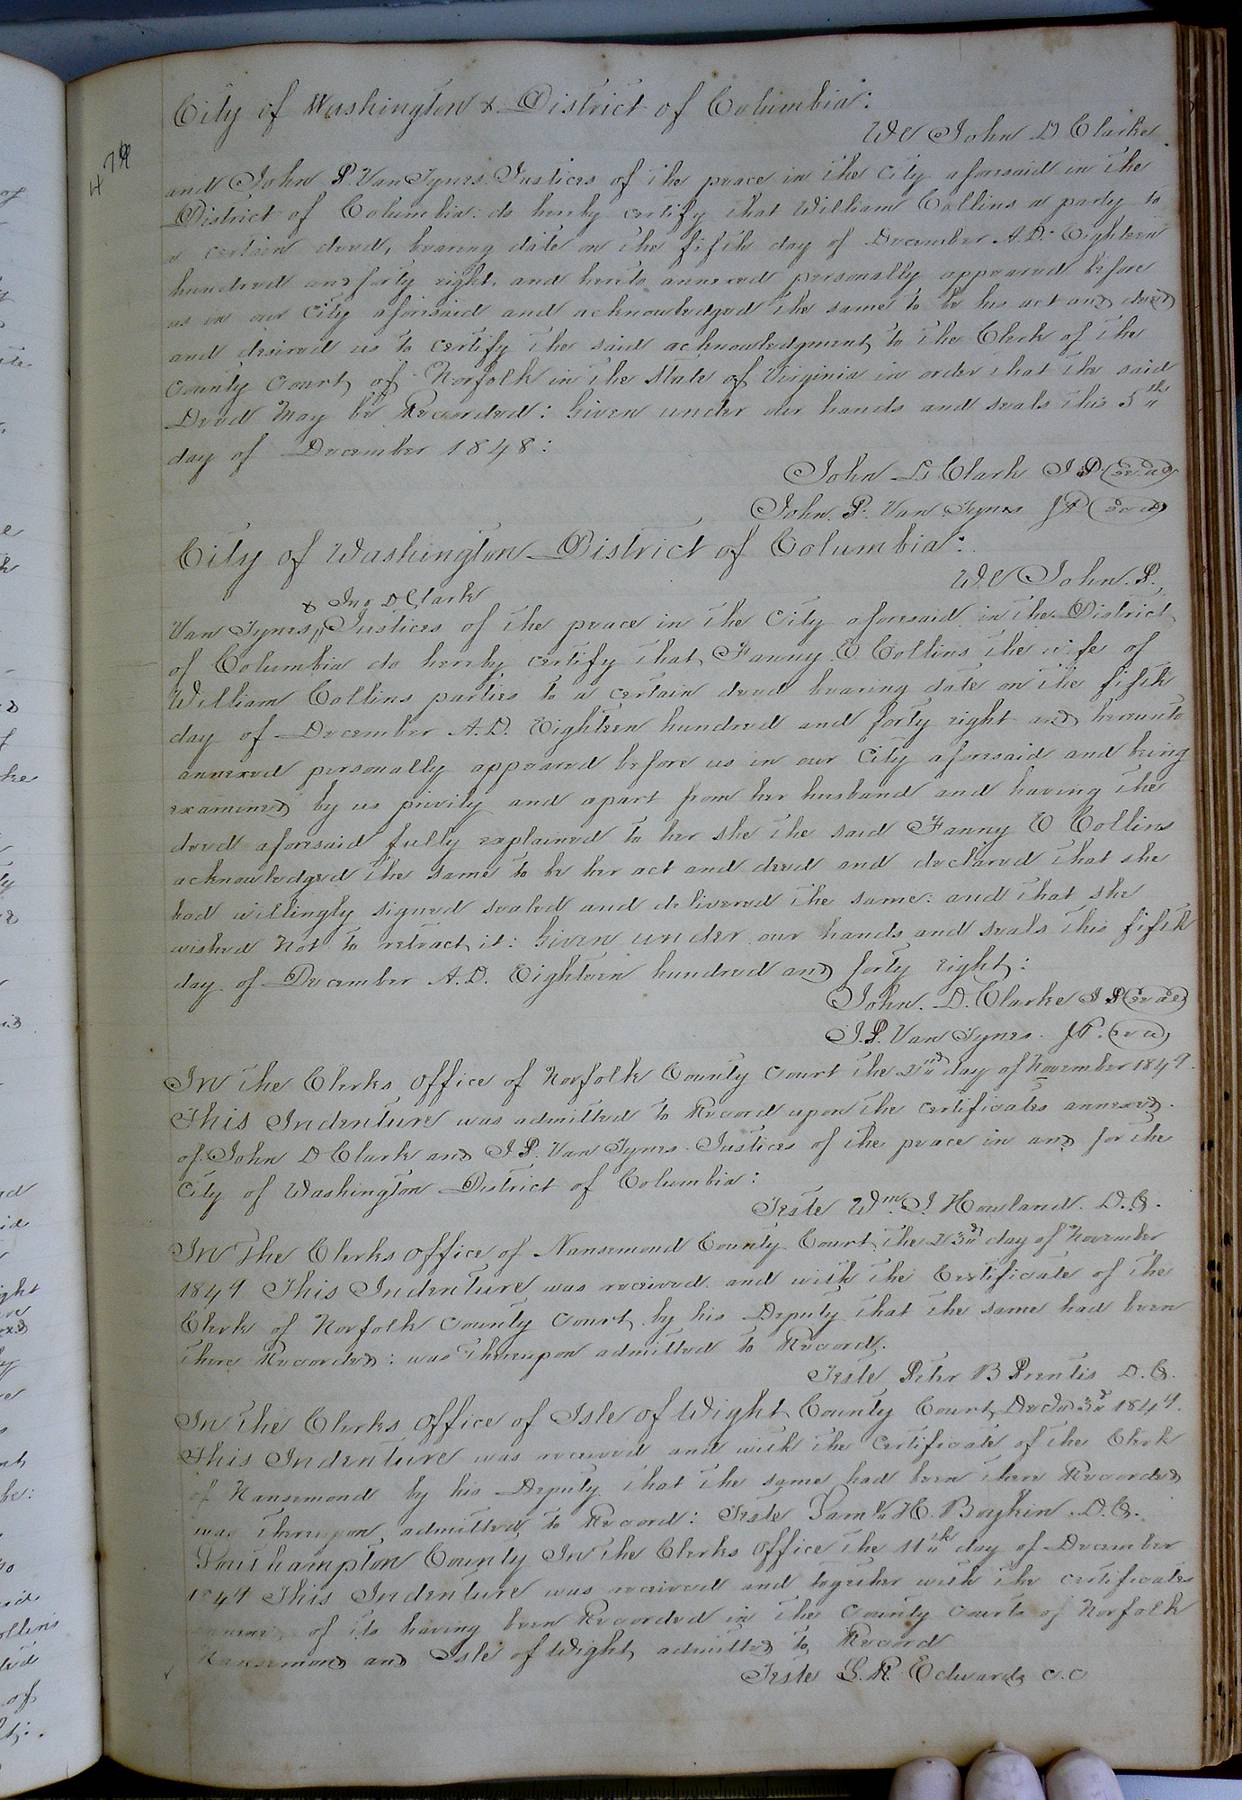 City of Washington & District of Columbia:
We John D Clarke
and John P. Van Tynes Justices of the peace in the City aforesaid in the
District of Columbia do hereby certify that William Collins a party to
a certain deed, bearing date on the fifth day of December A.D. Eighteen
hundred and forty eight, and hereto annexed personally appeared before
us in our City aforesaid and acknowledged the same to be his act and deed
and desired us to certify the said acknowledgment to the Clerk of the
County Court of Norfolk in the State of Virginia in order that the said
Deed may be Recorded: Given under our hands and seals this 5th
day of December 1848:
John D Clark J.P. (Seal)
John. P. Van Tynes JP (Seal)
City of Washington District of Columbia:
We John. P.
& Jno D Clark
Van Tynes, Justices of the peace in the City aforesaid in the District
of Columbia do hereby certify that Fanny E Collins the wife of
William Collins parties to a certain deed bearing date on the fifth
day of December A.D. Eighteen hundred and forty eight and hereunto
annexed personally appeared before us in our City aforesaid and being
examined by us privily and apart from her husband and having the
deed aforesaid fully explained to her she the said Fanny E Collins
acknowledged the same to be her act and deed and declared that she
had willingly signed sealed and delivered the same: and that she
wished not to retract it: Given under our hands and seals this fifth
day of December A.D. Eighteen hundred and forty eight:
John. D. Clarke J P (Seal)
J.P. Van Tynes. JP. (Seal)
In the Clerks office of Norfolk County Court the day of November 1849.
This Indenture was admitted to Record upon the certificates annexed.
of John D Clark and J P. Van Tynes Justices of the peace in and for the
City of Washington District of Columbia:
Teste Wm. J Howland. D.C.
In the Clerks office of Nansemond County Court the 23d day of November
1849 This Indenture was received and with the Certificate of the
Clerk of Norfolk County Court by his Deputy that the same had been
there Recorded: was thereupon admitted to Record.
Teste Peter B Prentis D.C.
In the Clerks office of Isle of Wight County Court Decr 3d 1849.
This Indenture was received and with the Certificate of the Clerk
of Nansemond by his Deputy that the same had been there Recorded
was thereupon admitted to Record: Teste Saml H. Boykin D.C.
Southampton County In the Clerks office the 11th day of December
1849 This Indenture was received and together with the certificates
of its having been Recorded in the County Courts of Norfolk
Nansemond and Isle of Wight admitted to Record
Teste L. R. Edwards C.C